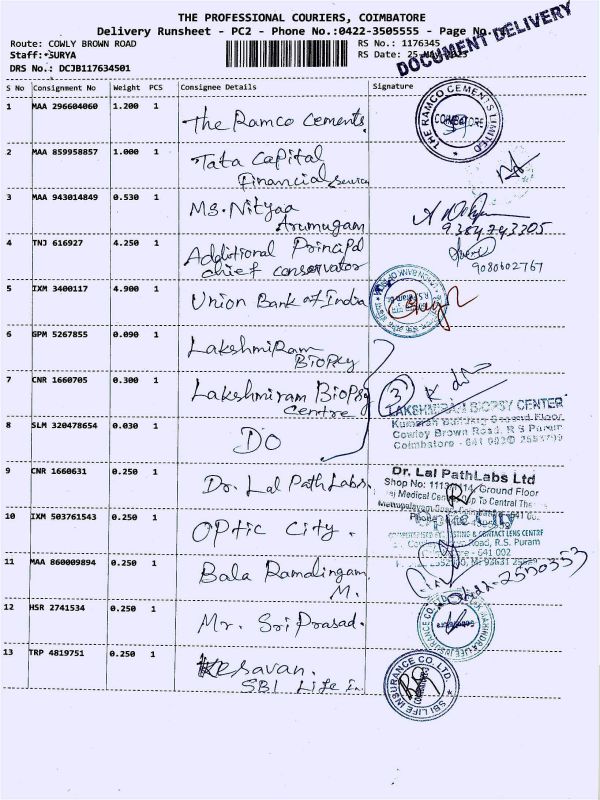 THE PROFESSIONAL COURIERS, COIMBATORE
Delivery Runsheet - PC2 - Phone No.:0422-3505555 - Page No.
DOCUMENT DELIVERY
Route: COWLY BROWN ROAD
RS No.: 1176345
Staff: SURYA
RS Date: 25
DRS No.: DCJB117634501
S No Consignment No Weight PCS Consignee Details Signature
1 MAA 296604060 1.200 1 The Ramco Cements.
THE RAMCO CEMENTS LIMITED
COIMBATORE
2 MAA 859958857 1.000 1 Tata Capital
Financial Service
3 MAA 943014849 0.530 1 Ms. Nityaa
Arumugam
9384743305
4 TNJ 616927 4.250 1 Additional Principal
chief conservator
9080602767
5 IXM 3400117 4.900 1 Union Bank of India
6 GPM 5267855 0.090 1 Lakshmi Ram
Biopsy
7 CNR 1660705 0.300 1 Lakshmiram Biopsy
Centre
3
LAKSHMIRAM BIOPSY CENTER
Kumaran Building Ground Floor
Cowley Brown Road, R S Puram
Coimbatore - 641 002
8 SLM 320478654 0.030 1 DO
9 CNR 1660631 0.250 1 Dr. Lal Path Labs.
Dr. Lal PathLabs Ltd
Ground Floor
Medical Center
10 IXM 503761543 0.250 1 Optic City.
Optic City
& CONTACT LENS CENTRE
Road, R.S. Puram
641 002
11 MAA 860009894 0.250 1 Bala Ramalingam.
M.
12 HSR 2741534 0.250 1 Mr. Sri Prasad.
13 TRP 4819751 0.250 1 Kesavan.
SBI Life In
SBI LIFE INSURANCE CO. LTD.